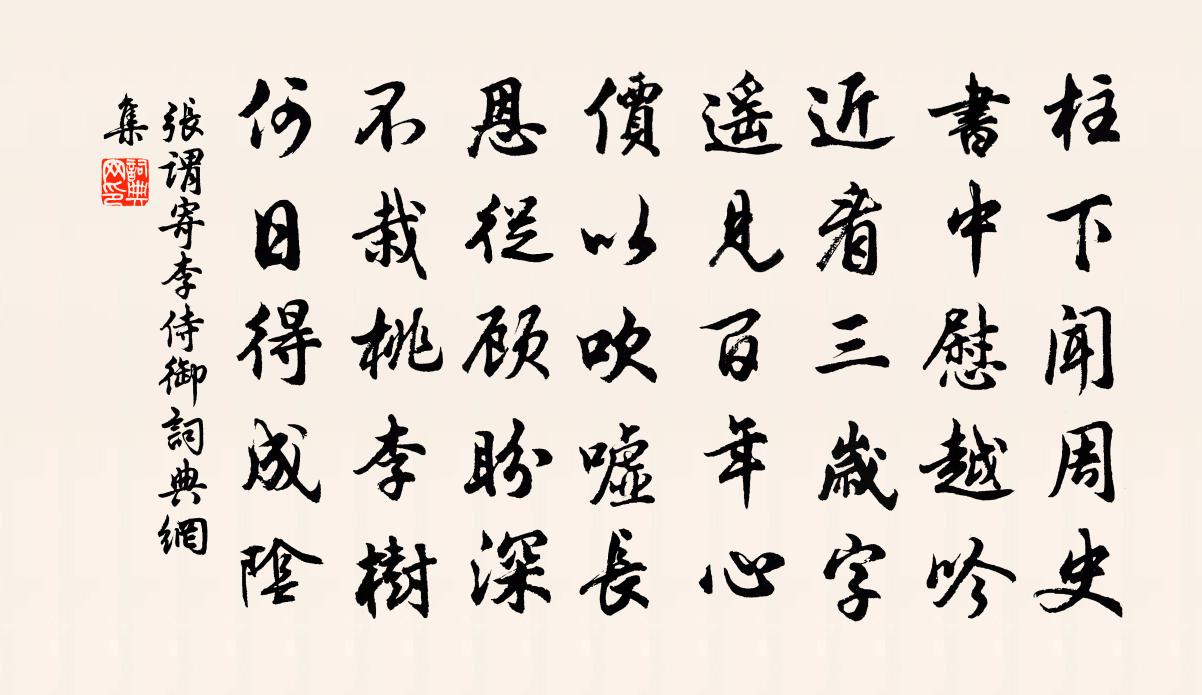 柱下聞周史
書中慰越吟
近看三歲字
遥見百年心
價以吹噓長
恩從顾盼深
不栽桃李樹
何日得成陰
張謂寄李侍御詞典網
集
詞典
网印